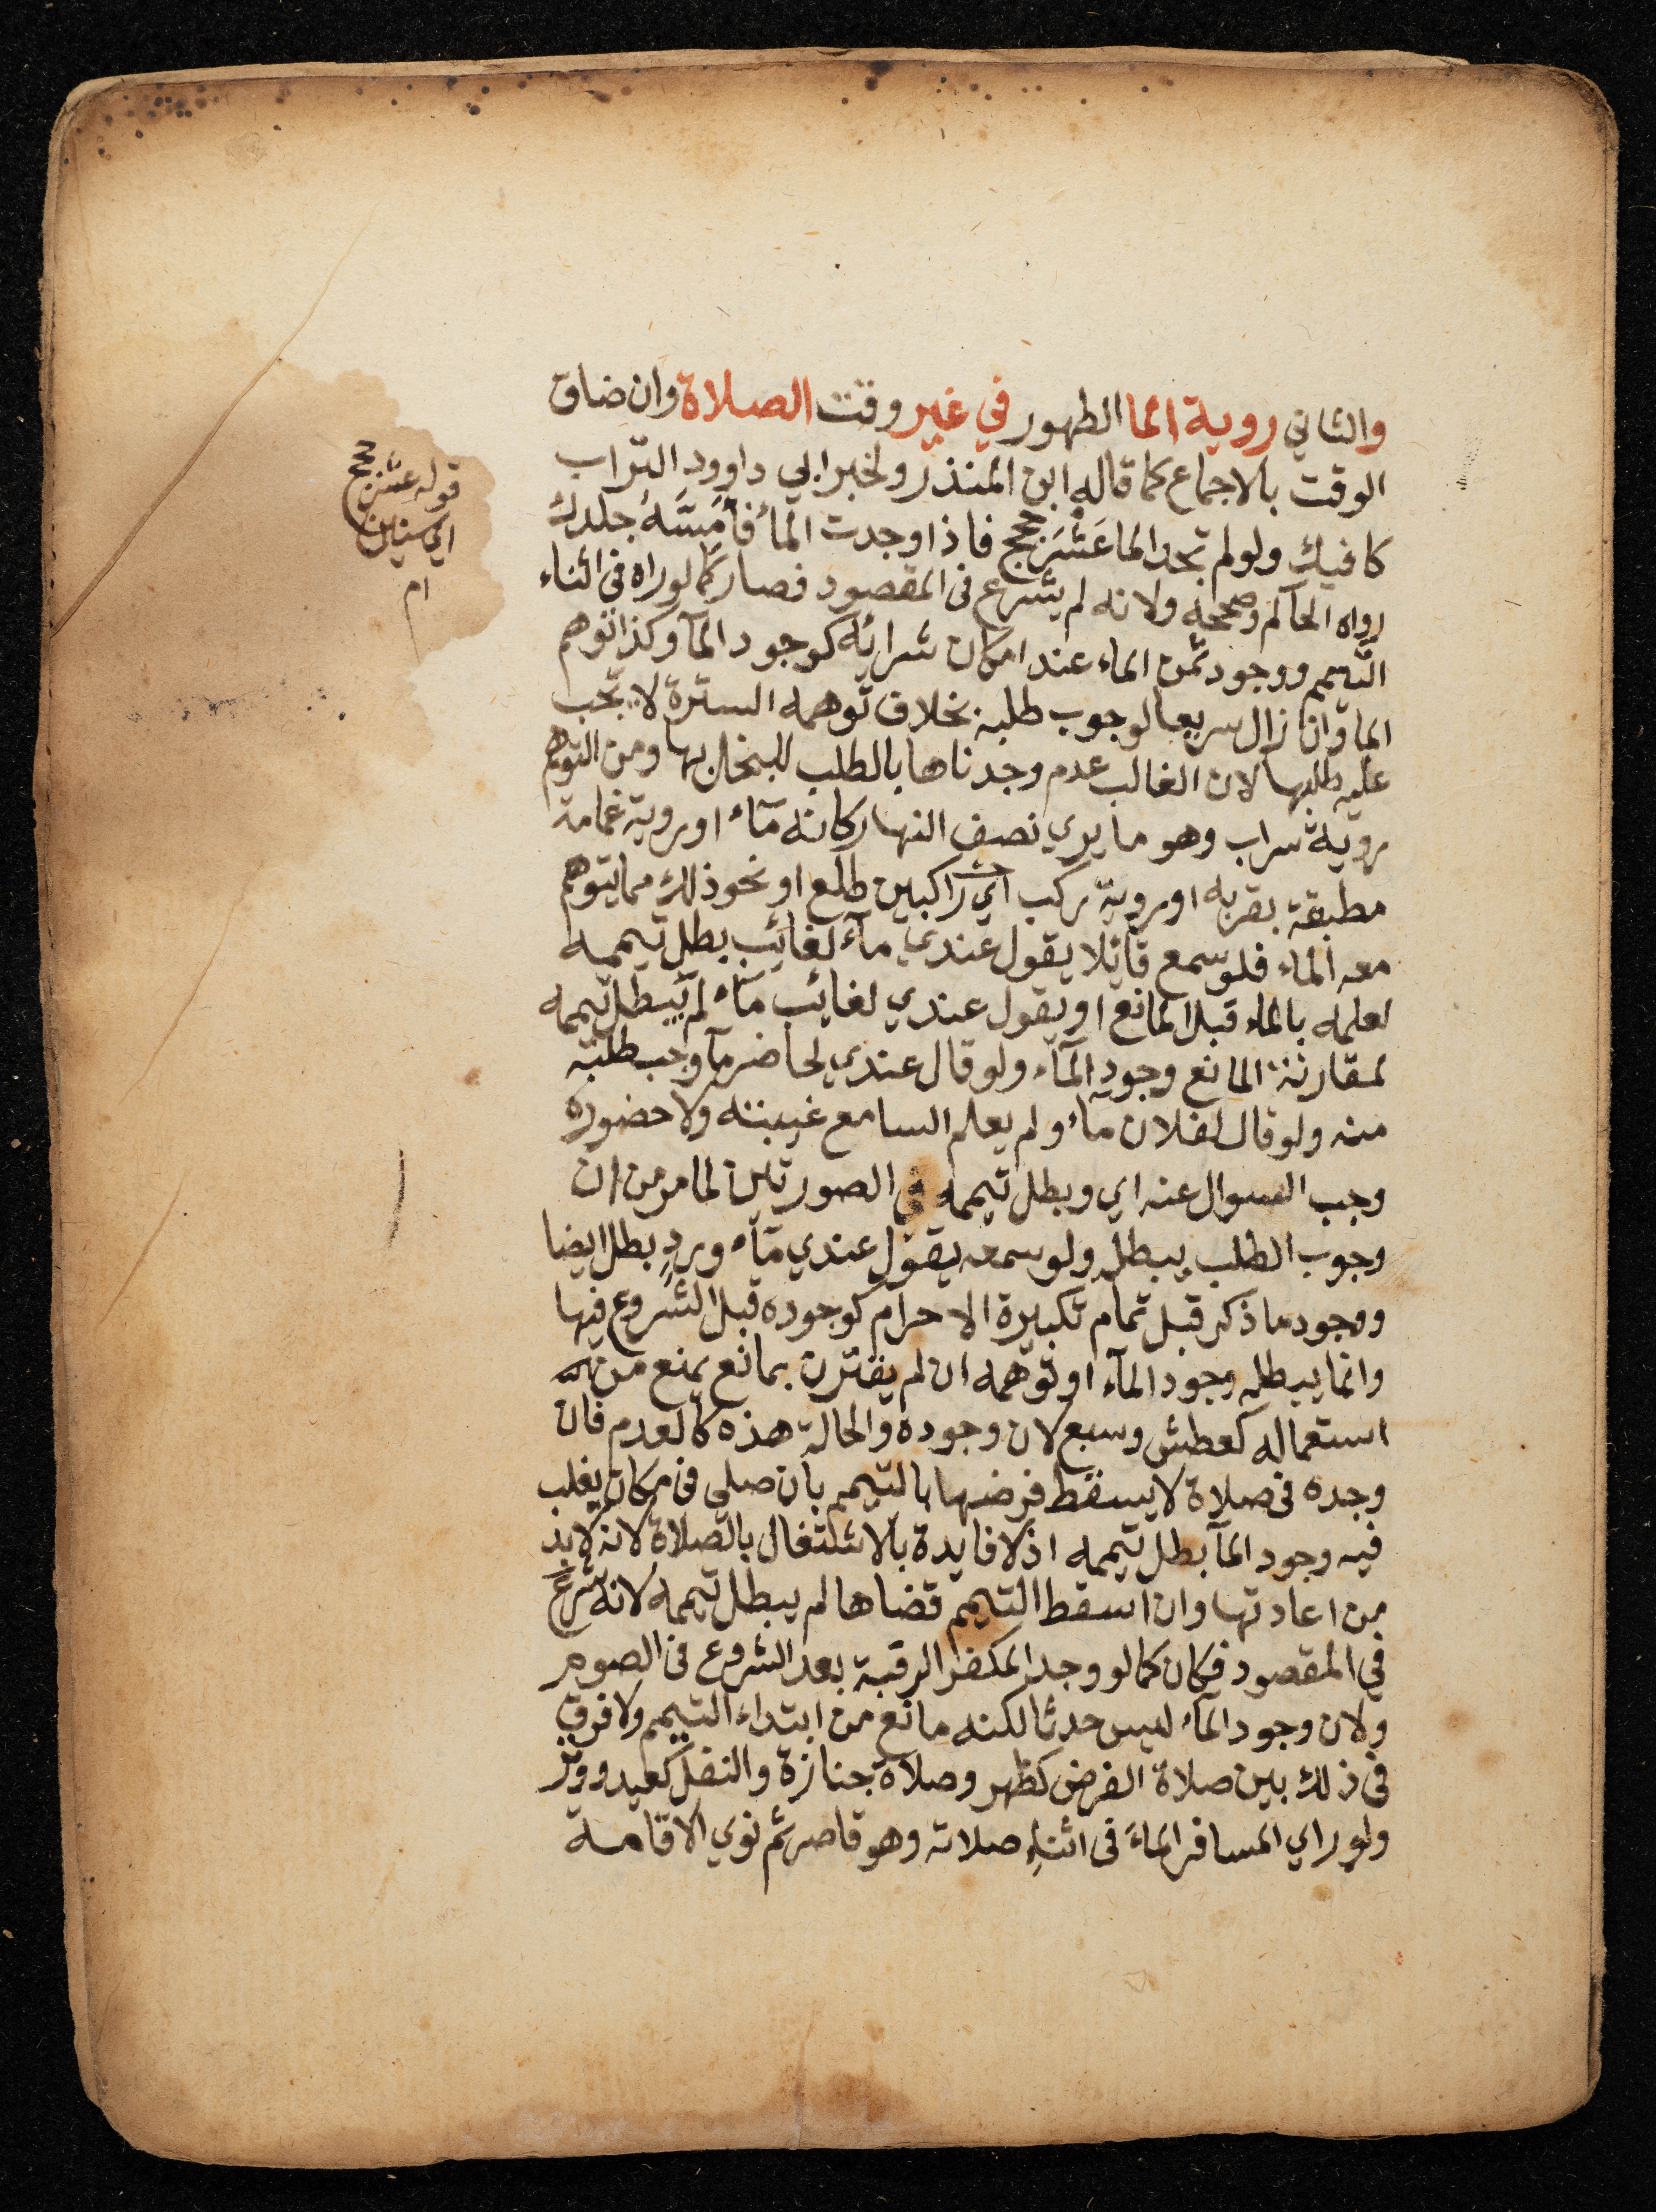 والثاني روية الما الطهور في غير وقت الصلاة وان ضاق
الوقت بالاجماع كما قاله ابن المنذر ولخبر ابي داوود التراب
كافيك ولو لم تجد الما عَشْرَ حجج فاذا وجدت الماء فأَمِسَّهُ جلدك
رواه الحاكم وصححه ولانه لم يشرع فى المقصود فصار كما لو راه فى اثناء
التيمم ووجود ثمن الماء عند امكان شرائه كوجود المآ وكذا توهم
الما وان زال سريعا لوجوب طلبه بخلاف توهمه السترة لا يجب
عليه طلبها لان الغالب عدم وجدناها بالطلب للبخل بها ومن التوهم
روية سراب وهو ما يري نصف النهار كانه مآء او روية غمامة
مطبقة بقربه او روية ركب اي راكبين طلع او نحو ذلك مما يتوهم
معه الماء فلو سمع قائلا يقول عندي مآء لغائب بطل تيممه
لعلمه بالماء قبل المانع او يقول عندي لغائب مآء لم يبطل تيممه
لمقارنة المانع وجود المآء ولو قال عندي لحاضر مآ وجب طلبه
منه ولو قال لفلان ماء ولم يعلم السامع غيبته ولا حضوره
وجب السوال عنه اي ويبطل تيممه في الصورتين لما مر من ان
وجوب الطلب يبطل ولو سمعه يقول عندي مآء ورد بطل ايضا
ووجود ما ذكر قبل تمام تكبيرة الاحرام كوجوده قبل الشروع فيها
وانما يبطله وجود المآء او توهمه ان لم يقترن بمانع يمنع من
استعماله كعطش وسبع لان وجوده والحالة هذه كالعدم فان
وجده فى صلاة لا يسقط فرضها بالتيمم بان صلى فى مكان يغلب
فيه وجود المآ بطل تيممه اذ لا فايدة بالاشتغال بالصلاة لانه لا بد
من اعادتها وان اسقط التيمم قضاها لم يبطل تيممه لانه شرع
في المقصود فكان كما لو وجد المكفر الرقبة بعد الشروع فى الصوم
ولان وجود المآء ليس حدثا لكنه مانع من ابتداء التيمم ولا فرق
فى ذلك بين صلاة الفرض كظهر وصلاة جنازة والنفل كعيد ووتر
ولو راي المسافر الماءَ فى اثناءِ صلاته وهو قاصر ثم نوي الاقامة
قوله عشر حجج
اي سنين
ام